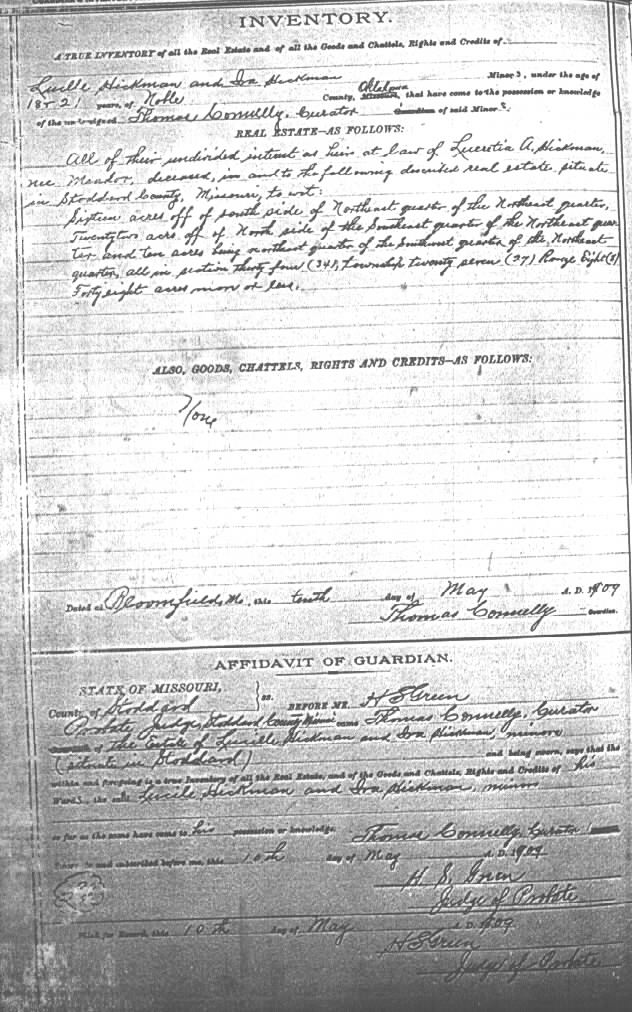 INVENTORY.
A TRUE INVENTORY of all the Real Estate and of all the Goods and Chattels, Rights and Credits of
Lucille Hickman and Iva Hickman Minors, under the age of
18 & 21 years, of Noble County, Missouri, Oklahoma that have come to the possession or knowledge
of the undersigned Thomas Connelly, Curator Guardian of said Minors
REAL ESTATE—AS FOLLOWS:
All of their undivided interest as heirs at law of Lucretia A. Hickman,
nee Meador, deceased, in and to the following described real estate situate
in Stoddard County, Missouri, to wit:
Sixteen acres off of south side of Northeast quarter of the Northeast quarter,
Twentytwo acres off of North side of the Southeast quarter of the Northeast quar
ter and ten acres being northeast quarter of the Southwest quarter of the Northeast
quarter, all in section thirty four (34), township twenty seven (27) Range Eight (8)
Forty eight acres more or less.
ALSO, GOODS, CHATTELS, RIGHTS AND CREDITS—AS FOLLOWS:
None
Dated at Bloomfield, Mo, this tenth day of May A. D. 1909
Thomas Connelly Guardian.
AFFIDAVIT OF GUARDIAN.
STATE OF MISSOURI,
County of Stoddard ss. BEFORE ME, H S Green
Probate Judge, Stoddard County Missouri came Thomas Connelly, Curator
of The Estate of Lucille Hickman and Iva Hickman, minors
(situate in Stoddard) and being sworn, says that the
within and foregoing is a true Inventory of all the Real Estate, and of the Goods and Chattels, Rights and Credits of his
Wards, the said Lucile Hickman and Iva Hickman, minors
so far as the same have come to his possession or knowledge.
Thomas Connelly, Curator
Sworn to and subscribed before me, this 10th day of May A. D. 1909
H. S. Green
Judge of Probate
Filed for Record, this 10th day of May A. D. 1909
H S Green
Judge of Probate